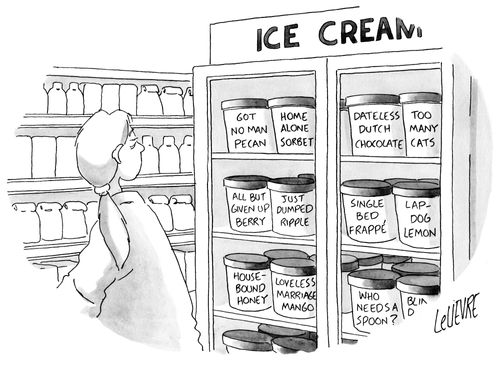 ICE CREAM
GOT
NO MAN
PECAN
HOME
ALONE
SORBET
DATELESS
DUTCH
CHOCOLATE
TOO
MANY
CATS
ALL BUT
GIVEN UP
BERRY
JUST
DUMPED
RIPPLE
SINGLE
BED
FRAPPÉ
LAP-
DOG
LEMON
HOUSE-
BOUND
HONEY
LOVELESS
MARRIAGE
MANGO
WHO
NEEDS A
SPOON?
BLIN
D
LeLIEVRE